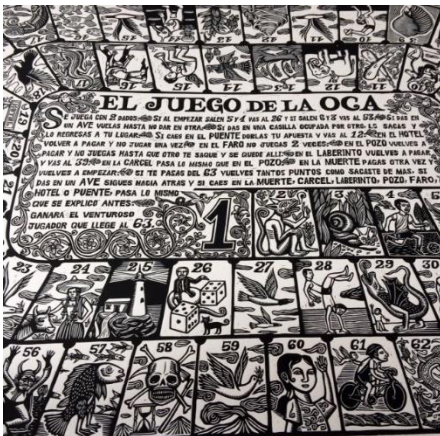 19
18
EL JUEGO DE LA OCA
SE JUEGA CON 2 DADOS. SI AL EMPEZAR SALEN 5 Y 4 VAS AL 26 Y SI SALEN 6 Y 3 VAS AL 53. SI DAS EN
UN AVE VUELAS HASTA NO DAR EN OTRA. SI DAS EN UNA CASILLA OCUPADA POR OTRO LO SACAS Y
LO REGRESAS A TU LUGAR. SI CAES EN EL PUENTE DOBLAS TU APUESTA Y VAS AL 12. EN EL HOTEL
VOLVER A PAGAR Y NO JUGAR UNA VEZ EN EL FARO NO JUEGAS 2 VECES. EN EL POZO VUELVES A
PAGAR Y NO JUEGAS HASTA QUE OTRO TE SAQUE Y SE QUEDE ALLI. EN EL LABERINTO VUELVES A PAGAR
Y VAS AL 39. EN LA CARCEL PASA LO MISMO QUE EN EL POZO. EN LA MUERTE PAGAS OTRA VEZ Y
VUELVES A EMPEZAR. SI TE PASAS DEL 63 VUELVES TANTOS PUNTOS COMO SACASTE DE MAS. SI
DAS EN UN AVE SIGUES HACIA ATRAS Y SI CAES EN LA MUERTE, CARCEL, LABERINTO, POZO, FARO,
HOTEL O PUENTE, PASA LO MISMO
QUE SE EXPLICO ANTES.
GANARA EL VENTUROSO
JUGADOR QUE LLEGE AL 63.
1 2 3 4
23 24 25 26 27 28 29 30
56 57 58 59 60 61 62